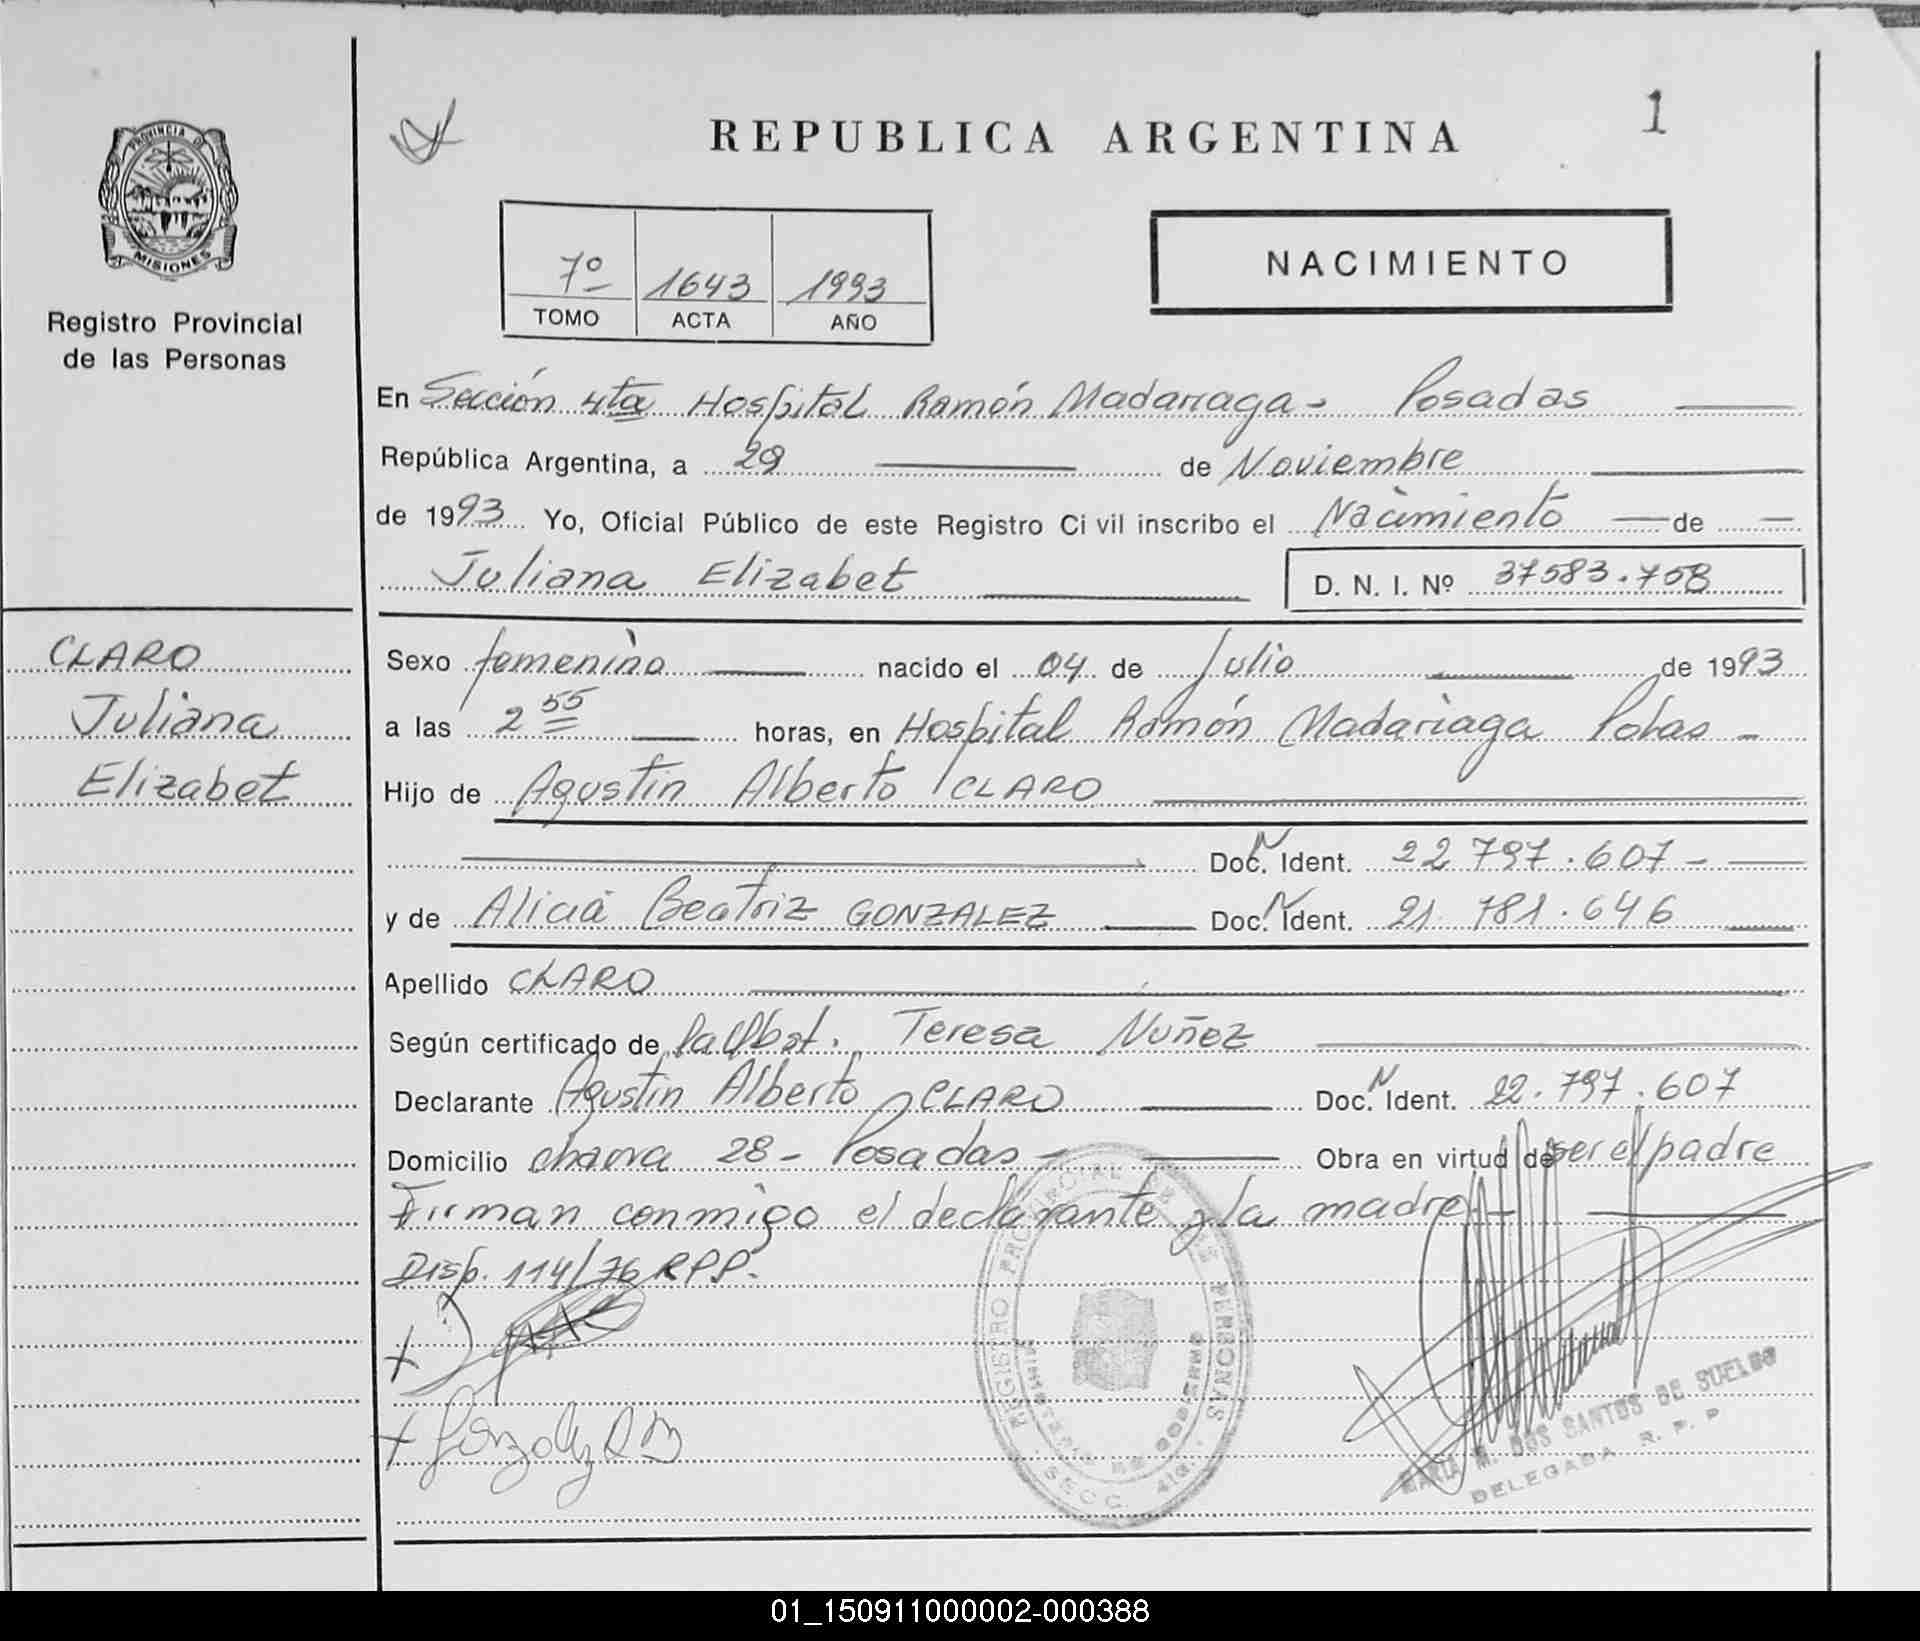 REPUBLICA ARGENTINA
1
PROVINCIA DE
MISIONES
Registro Provincial
de las Personas
7º 1643 1993
TOMO ACTA AÑO
NACIMIENTO
En Sección 4ta Hospital Ramón Madariaga - Posadas
República Argentina, a 29 de Noviembre
de 1993 Yo, Oficial Público de este Registro Civil inscribo el Nacimiento de
Juliana Elizabet D. N. I. Nº 37583.758
CLARO
Juliana
Elizabet
Sexo femenino nacido el 04 de Julio de 1993
a las 2 55 horas, en Hospital Ramón Madariaga -
Hijo de Agustin Alberto CLARO
Doc. N Ident. 22 797.607 -
y de Alicia Beatriz GONZALEZ Doc. N Ident. 21 781.646
Apellido CLARO
Según certificado de Teresa Nuñez
Declarante Agustin Alberto CLARO Doc. N Ident. 22.797.607
Domicilio chacra 28 - Posadas - Obra en virtud de ser el padre
Firman conmigo el declarante y la madre -
Disp. 114/76 RPP.
REGISTRO PROVINCIAL DE LAS PERSONAS
MINISTERIO DE GOBIERNO
SECC. 4ta.
MARIA M. DOS SANTOS DE SUELDO
DELEGADA R. P. P.
01_150911000002-000388